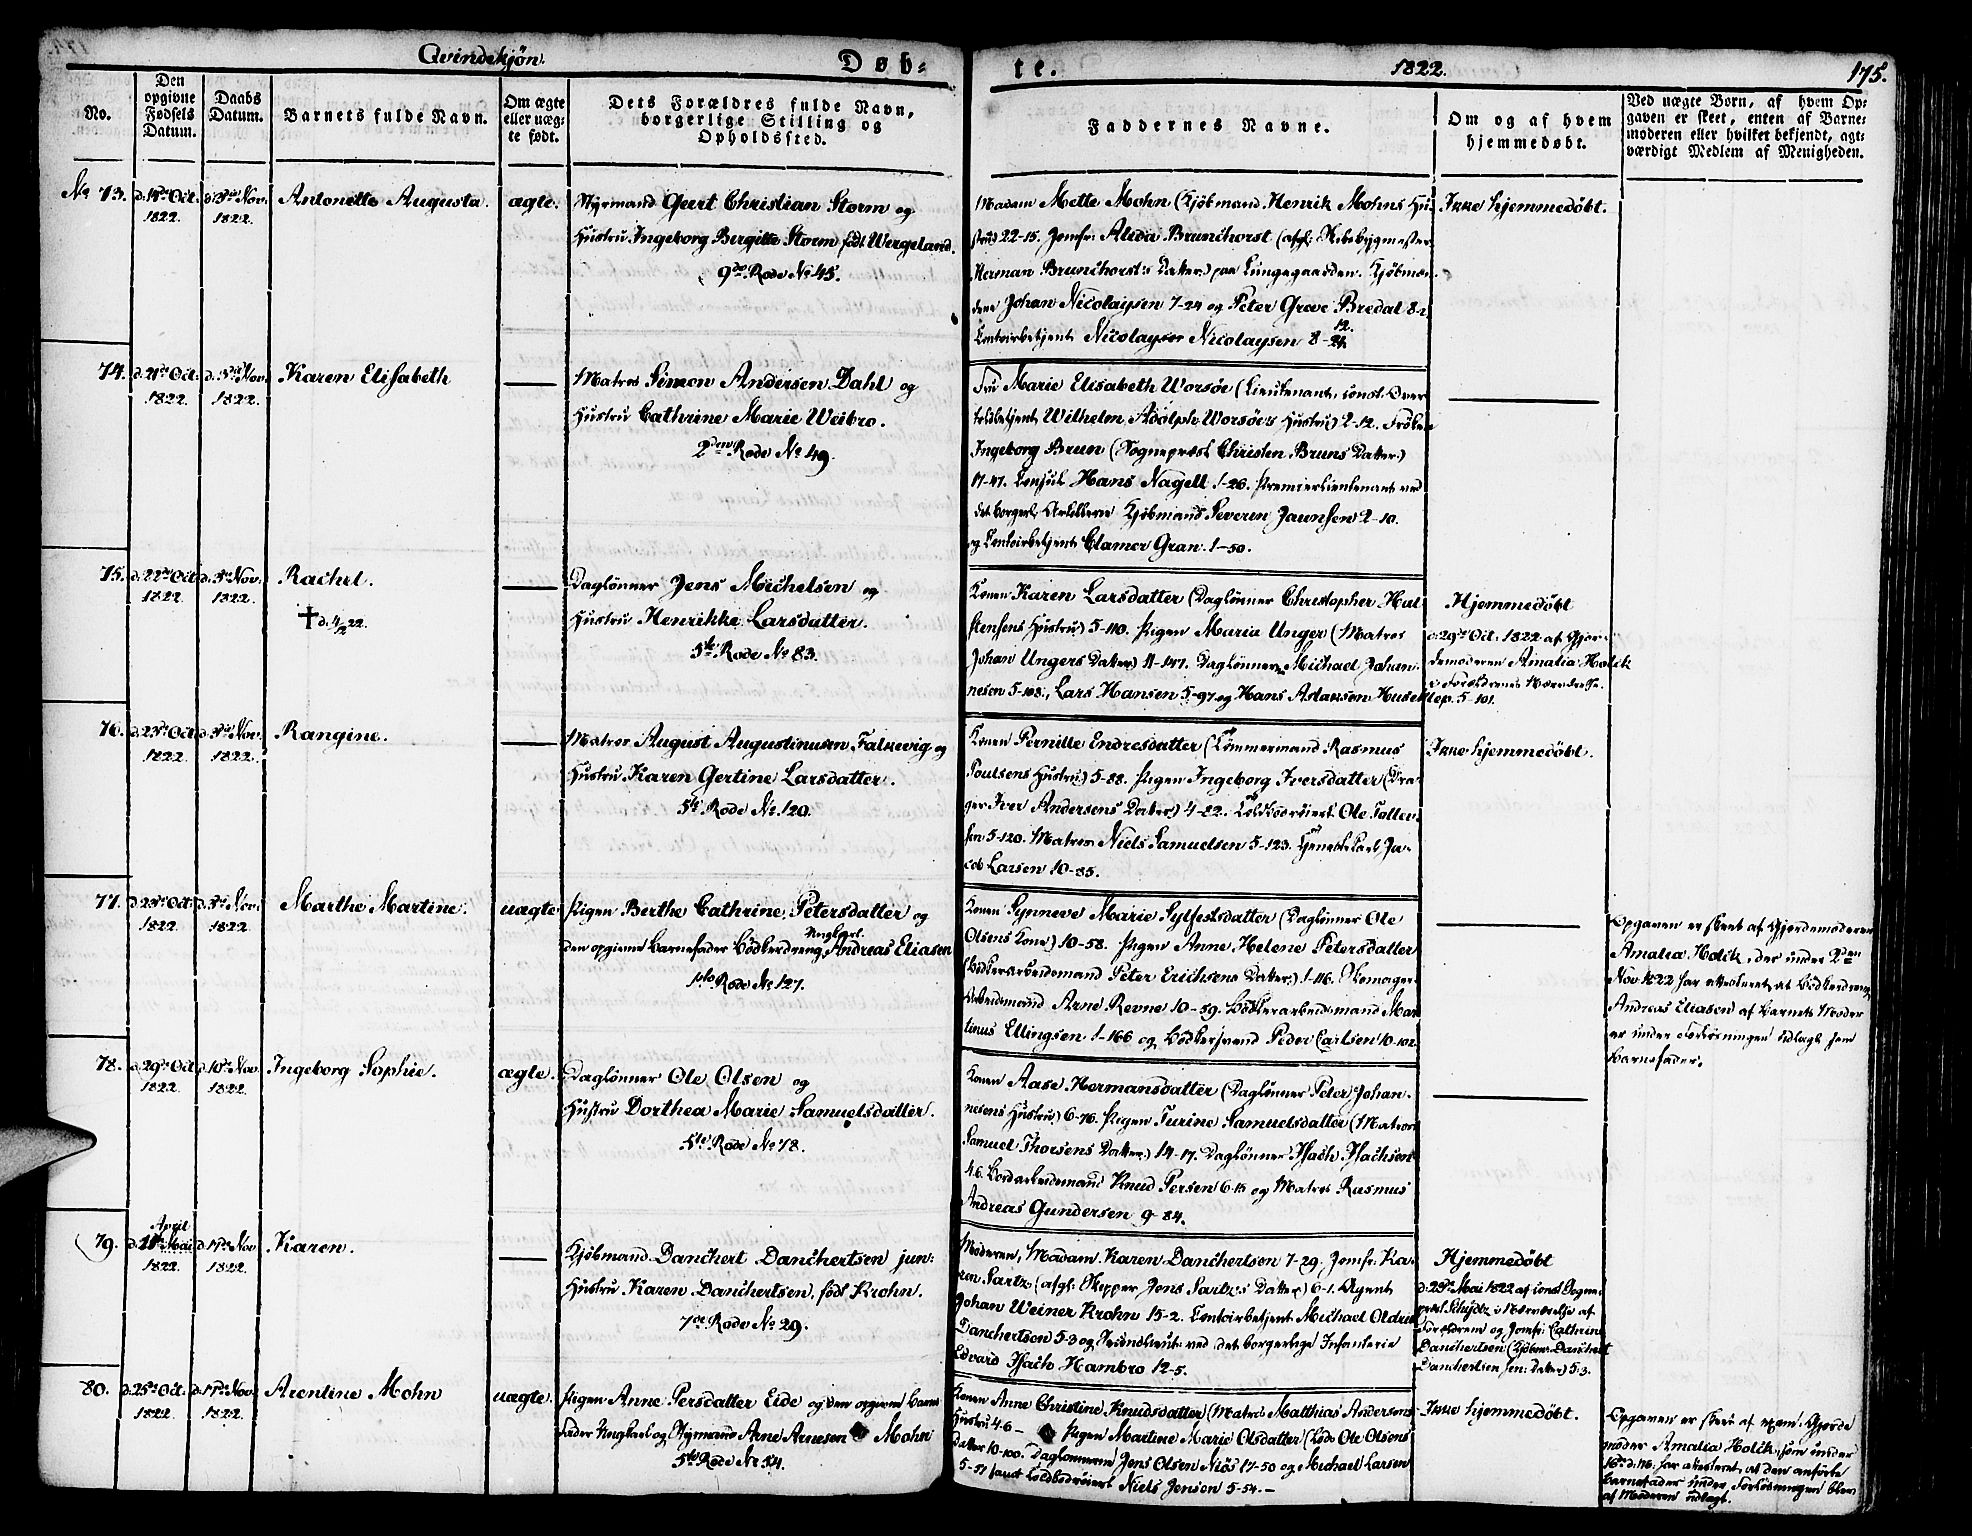 Qvindekjøn.
Døb-
te.
1822.
175.
No.
Den
opgivne
Fødsels
Datum.
Daabs
Datum.
Barnets fulde Navn.
Om ægte
eller uæg-
te født.
Dets Forældres fulde Navn,
borgerlige Stilling og
Opholdssted.
Faddernes Navne.
Om og af hvem
hjemmedøbt.
Ved uægte Børn, af hvem Op-
gaven er skeet, enten af Barne-
moderen eller hvilket bekjendt, agt-
værdigt Medlem af Menigheden.
No 73.
Oct.
1822.
Nov.
1822.
Antonette Augusta.
ægte.
Styrmand Geert Christian Storm og
Hustru Ingeborg Bergitte Storm født Wergeland.
9de Rode No 45.
Madam Mette Mohn (Kjøbmand Henrik Mohns Hu-
stru) 22-15. Jomfr: Aleda Brunchorst (afgl: Skibsbygmester
Herman Brunchorst's Datter) paa Lungegaarden. Kjøbmæn-
dene Johan Nicolaysen 7-24 og Peter Greve Bredal 8-
12.
Contoirbetjent Nicolay Nicolaysen 8-24.
Ikke hjemmedøbt.
74.
d. 21de Oct.
1822.
d. 3die Nov.
1822.
Karen Elisabeth
Matros Simon Andersen Dahl og
Hustru Cathrine Marie Weibro.
2den Rode No 49.
Fru Marie Elisabeth Worsöe (Lieutenant, const. Over
toldbetjent Wilhelm Adolph Worsöe's Hustru) 2-12. Fröken
Ingeborg Brun (Sognepræst Christen Bruns Datter)
17-47. Consul Hans Nagell 1-26. Premierlieutenant ved
det borgerl: Artillerie Kjøbmand Severin Jaunsen 2-10.
og Contoirbetjent Clamer Gran. 1-50.
75.
d. 22de Oct.
1822.
d. 3die Nov.
1822.
Rachel.
† d. 4/2 22.
Daglönner Jens Michelsen og
Hustru Henrikke Larsdatter.
5te Rode No 83.
Konen Karen Larsdatter (Daglönner Christopher Hal
stensens Hustru) 5-110. Pigen Maria Unger (Matros
Johan Ungers Datter) 11-147. Daglönner Michael Johan-
nesen 5-108., Lars Hansen 5-97 og Hans Adamsen Husekl
Hjemmedöbt
d. 29de Oct. 1822 af Gjor-
demoderen Amalia Holck
i Forældrenes Nærværelse.
5-101.
76.
d. 23de Oct.
1822.
d. 3die Nov.
1822.
Rangine.
Matros August Augustinusen Falkevig og
Hustru Karen Gertine Larsdatter.
5te Rode No 120.
Konen Pernille Endresdatter (Tömmermand Rasmus
Poulsens Hustru) 5-88. Pigen Ingeborg Iversdatter (Dra-
ger Iver Andersens Datter) 4-82. Toldbodröiert Ole Toller-
sen 5-120. Matros Niels Samuelsen 5-123. Tjenestekarl Ja-
cob Larsen 10-85.
Ikke hjemmedöbt.
77.
d. 23de Oct.
1822.
d. 3die Nov.
1822.
Marthe Martine.
uægte
Pigen Berthe Cathrine Petersdatter og
Ungkarl.
den opgivne Barnefader Bödkerdreng Andreas Eliasen
1ste Rode No 127.
Konen Synneve Marie Sylfestsdatter (Daglönner Ole
Olsens Kone) 10-58. Pigen Anne Helene Petersdatter
(Bödkerarbeidsmand Peter Erichsens Datter) 1-116. Skomager-
Arbeidsmand Arne Revne 10-59. Bödkerarbeidsmand Mar
tinus Ellingsen 1-166 og Bödkersvend Peder Carlsen 10-102.
Opgaven er skeet af Gjordemoderen
Amalia Holck, der under 2den
Nov. 1822 har attesteret, at Bödkerdreng
Andreas Eliasen af Barnets Moder
er under Forlösningen udlagt som
Barnefader.
78.
d. 29de Oct.
1822.
d. 10de Nov.
1822.
Ingeborg Sophie.
ægte.
Daglönner Ole Olsen og
Hustru Dorthea Marie Samuelsdatter.
5te Rode No 78.
Konen Aase Hermansdatter (Daglönner Peter Johan-
nesens Hustru) 6-76. Pigen Turine Samuelsdatter (Matros
Samuel Thorsens Datter) 14-17. Daglönner Isach Isachsen
4-6. Bordarbeidsmand Knud Persen 6-15 og Matros Rasmus
Andreas Gundersen 9-84.
79.
April
Mai
1822.
d. 17de Nov.
1822.
Karen.
Kjöbmand Danchert Danchertsen jun:
Hustru Karen Danchertsen, født Krohn.
7de Rode No 29.
Moderen, Madam Karen Danchertsen 7-29. Jomfr. Ka-
ren Sartz (afgl. Skipper Jens Sartz's Datter) 6-1. Agent
Johan Weiner Krohn 15-2. Contoirbetjent Michael Oldrui
Danchertsen 5-3 og Secondlieut: ved det borgerlige Infanterie
Edvard Isach Hambro 12-5.
Hjemmedöbt
d. 29de Mai 1822 af const. Sogne-
præst Schjötz i Nærværelse af
Forældrene og Jomfr: Cathrine
Danchertsen (Kjöbm: Danchert
Danchertsen sen: Datter) 5-3.
80.
d. 25de Oct.
1822.
d. 17de Nov.
1822.
Arentine Mohn
uægte.
Pigen Anne Persdatter Eide og den opgivne Barne-
fader Ungkarl og Styrmand Arne Arnesen Mohn
5te Rode No 54.
Konen Anne Christine Knudsdatter (Matros Matthias Andersens
Hustru) 4-6 - Pigen Martine Marie Olsdatter (Lods Ole Olsens
Datter) 10-100. Daglönnerne Jens Olsen Niös 17-50 og Michael Larsen
5-51 samt Toldbodröiert Niels Jensen 5-54. -
Ikke hjemmedöbt.
Opgaven er skeet af exam: Gjorde
moder Amalia Holck, som under
16de d. M. har attesteret, at den anförte
Barnefader under Forlösningen blev
af Moderen udlagt.